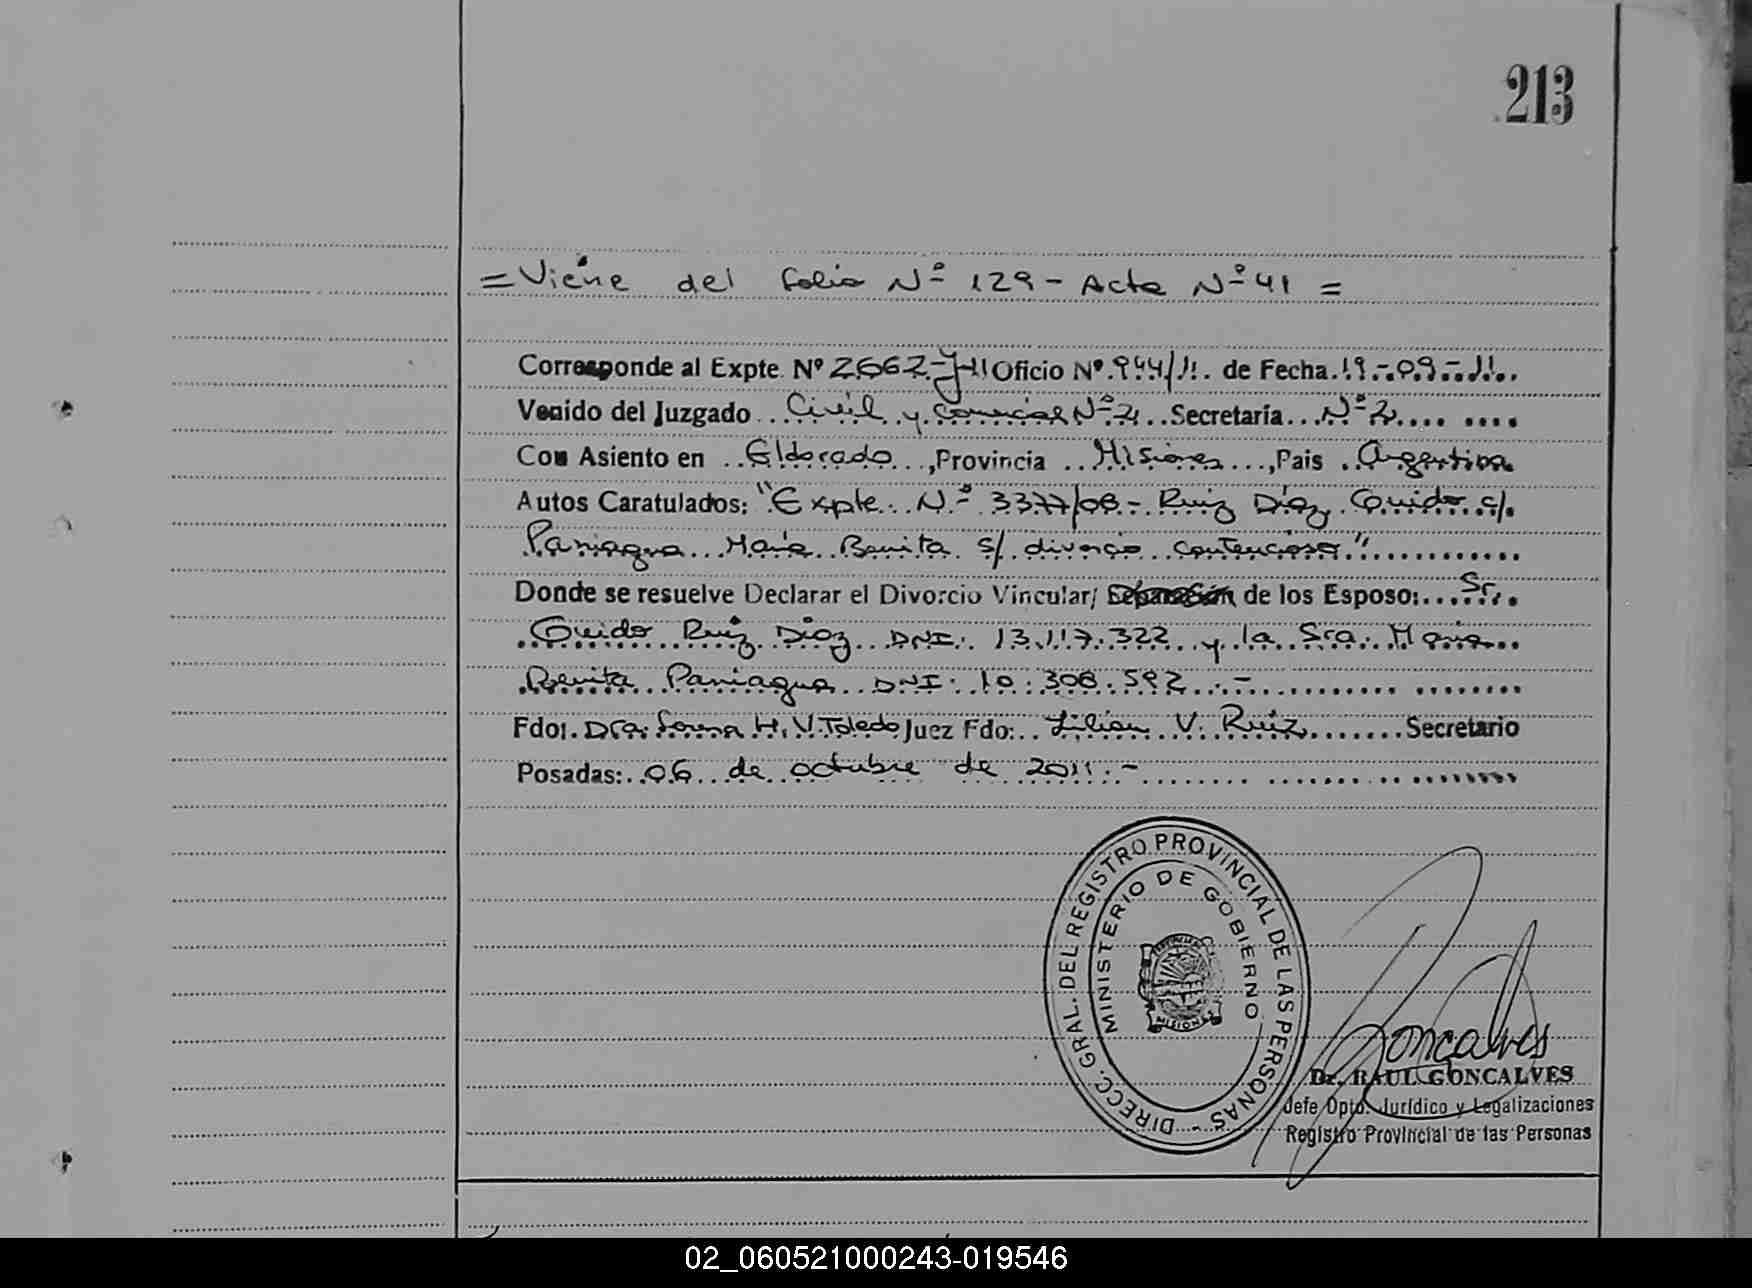 213
= Viene del folio Nº 129 - Acta Nº 41 =
Corresponde al Expte Nº 2662-J-11 Oficio Nº 944/11. de Fecha 19-09-11.
Venido del Juzgado Civil y Comercial Nº 2, Secretaría Nº 2
Con Asiento en Eldorado, Provincia Misiones, Pais Argentina
Autos Caratulados: "Expte. Nº 3377/08 - Ruiz Díaz Guido c/.
Paniagua María Benita s/ divorcio contencioso"
Donde se resuelve Declarar el Divorcio Vincular/ Separación de los Esposo: Sr.
Guido Ruiz Díaz DNI: 13.117.322 y la Sra. María
Benita Paniagua DNI: 10.308.592.-
Fdo. Dra. H. V. Toledo Juez Fdo: Lilian V. Ruiz Secretario
Posadas: 06 de octubre de 2011.-
DIRECC. GRAL. DEL REGISTRO PROVINCIAL DE LAS PERSONAS -
MINISTERIO DE GOBIERNO
MISIONES
Goncalves
Dr. RAUL GONCALVES
Jefe Dpto. Jurídico y Legalizaciones
Registro Provincial de las Personas
02_060521000243-019546